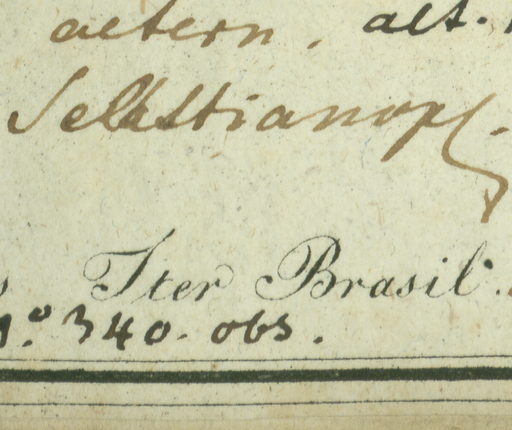 aetern. alt.
Sebastianop.
Iter Brasil.
340. obs.